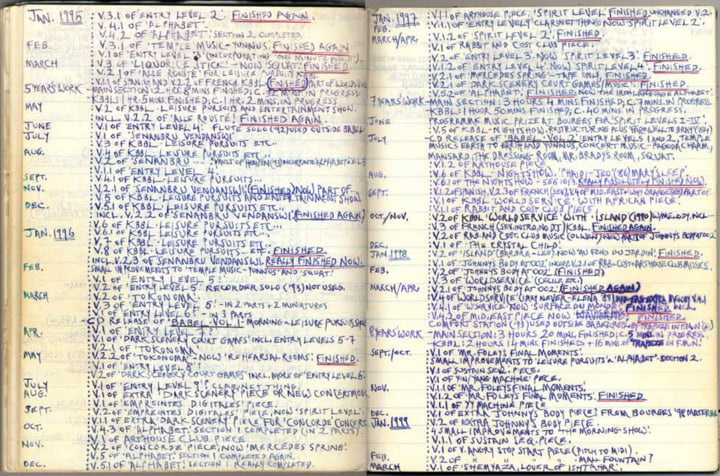 JAN. 1995 : V.3.1 OF 'ENTRY LEVEL 2'. FINISHED AGAIN.
: V.4.1 OF 'ALPHABET'.
: V.4.2 OF 'ALPHABET'. SECTION 2 COMPLETED.
FEB. : V.3.1 OF 'TEMPLE MUSIC - YUNNUS'. FINISHED AGAIN.
: V.1 OF 'ENTRY LEVEL
MARCH : V.3 OF 'LIQUORICE STICK' NOW 'SQUAT'. FINISHED.
: V.2.1 OF 'ALLE ROUTE' FOR LEISURE
5 YEARS WORK - MAIN SECTION: 2 HRS 8 MINS FINISHED, C. 32 IN PROGRESS
KBBL: 1 HR 5 MINS FINISHED, C. 1 HR 2 MINS IN PROGRESS
MAY : V.2 OF KBBL - LEISURE PURSUITS AND ENTERTAINMENT SHOW.
: INCL. V.2.2 OF 'ALLE ROUTE'! FINISHED AGAIN.
JUNE : V.1 OF 'ENTRY LEVEL 4'. FLUTE SOLO ('92) USED OUTSIDE BABEL
JULY : V.1 OF 'SENABRU VENDANSWI'
: V.3 OF KBBL - LEISURE PURSUITS ETC..
AUG. : V.2 OF 'SENABRU
: V.1.1 OF 'ENTRY LEVEL
SEPT. : V.4 OF KBBL - LEISURE PURSUITS...
NOV. : V.2.1 OF 'SENABRU VENDANSWI' (FINISHED NOW) PART OF...
: V.5 OF KBBL - LEISURE PURSUITS AND ENTERTAINMENT SHOW
DEC. : V.5.1 OF KBBL - LEISURE PURSUITS ETC..
: INCL. V.2.2 OF 'SENABRU VENDANSWI' (FINISHED AGAIN)
: V.6 OF KBBL - LEISURE PURSUITS ET...
JAN. 1996 : V.6.1 OF KBBL - LEISURE PURSUITS ETC..
: V.7 OF KBBL - LEISURE PURSUITS ET..
: V.8 OF KBBL - LEISURE PURSUITS ETC. FINISHED
INCL. V.2.3 OF SENABRU VENDANSWI REALLY FINISHED NOW.
FEB. SMALL IMPROVEMENTS TO 'TEMPLE MUSIC - YUNNUS' AND 'SQUAT'.
: V.1 OF 'ENTRY LEVEL 5'!
: V.2 OF 'ENTRY LEVEL 5'. RECORDER SOLO ('93) NOT USED.
MARCH : V.1 OF 'TOKONOMA'.
: V.3 OF 'ENTRY LEVEL 5' - IN 2 PARTS + 2 MINIATURES
: V.1 OF 'ENTRY LEVEL 6' - IN 3 PARTS
- CD RELEASE OF 'BABEL VOL. 1' - MORNING - LEISURE PURSUITS
APR. : V.1 OF 'ENTRY LEVEL 7'
: V.1 OF 'DARK SCENERY COURT GAMES' INCL. ENTRY LEVELS 5-7
: V.1.1 OF 'TOKONOMA'.
MAY : V.2 OF 'TOKONOMA' - NOW 'REHEARSAL ROOMS'. FINISHED.
: V.1 OF 'ENTRY LEVEL 8'
: V.2 OF 'DARK SCENERY COURT GAMES' INCL. MORE OF ENTRY LEVEL 6.
JULY : V.1 OF 'ENTRY LEVEL 9': CLARINET THING.
AUG. : V.1 OF EXTRA 'DARK SCENERY' PIECE OR NEW
: V.1 OF 'EMPREINTES DIGITALES' PIECE.
SEPT. : V.2 OF 'EMPREINTES DIGITALES' PIECE, NOW 'SPIRIT LEVEL'.
: V.1.1 OF EXTRA 'DARK SCENERY' PIECE FOR 'CONCORDE'
OCT. : V.4.3 OF 'ALPHABET'. SECTION 1 COMPLETED (IN 2 PARTS).
: V.1 OF ARTHOUSE CLUB PIECE
NOV. : V.2 OF 'CONCORDE' PIECE, NOW 'MERCEDES SPRING'.
: V.5 OF 'ALPHABET'. SECTION 1 COMPLETED AGAIN.
DEC. : V.5.1 OF 'ALPHABET'. SECTION 1 REALLY COMPLETED.
JAN. 1997 : V.1.1 OF ARTHOUSE PIECE. 'SPIRIT LEVEL' FINISHED UNCHANGED V.2.
FEB. : V.1.1 OF 'ENTRY LEVEL 9' CLARINET THING NOW 'SPIRIT LEVEL 2'.
MARCH/APR. : V.1.2 OF 'SPIRIT LEVEL 2'. FINISHED.
: V.1 OF RABBIT AND COST CLUB PIECE.
: V.2 OF 'ENTRY LEVEL 3'. NOW 'SPIRIT LEVEL 3'. FINISHED.
: V.2 OF 'ENTRY LEVEL 4'. NOW 'SPIRIT LEVEL 4'. FINISHED.
: V.2.1 OF 'MERCEDES SPRING' - TAPE ONLY. FINISHED.
: V.2.1 OF 'DARK SCENERY COURT GAMES/MUSIC'. FINISHED.
: V.5.2 OF 'ALPHABET'. FINISHED
7 YEARS WORK - MAIN SECTION: 3 HOURS 4 MINS FINISHED, C. 7 MINS IN PROGRESS
KBBL: 1 HOUR 50 MINS FINISHED, C. 40 MINS IN PROGRESS.
JUNE : PROGRAMME MUSIC, PROJECT SOURCES FOR 'SPIRIT LEVELS I-IV'
JULY : V.5 OF KBBL - 'NIGHTSHOW'.
: CD RELEASE OF 'BABEL VOL. 2'
MUSICS EARTH TO EARTH AND YUNNUS, CONCERT MUSIC - PAGODA CHARM,
MANSARD, THE DRESSING ROOM, MR. BRADY'S ROOM, SQUAT.
: V.1.2 OF ARTHOUSE PIECE
AUG. : V.6 OF KBBL - NIGHTSHOW.
: V.6.1 OF THE NIGHTSHOW - SEG 10 (REALLY ABSOLUTELY) FINISHED NOW.
SEPT.
: V.1 OF KBBL 'WORLD SERVICE' WITH AFRICAN PIECE.
: V.1.1 OF RABBIT AND COST CLUB PIECE
OCT./NOV. : V.2 OF KBBL 'WORLD SERVICE' WITH 'ISLAND' (1990)
: V.3 OF FRENCH KBBL. FINISHED AGAIN.
: V.2 OF RAB AND COST CLUB MUSIC
DEC. : V.1 OF 'THE CRYSTAL CHILD'.
JAN. 1998 : V.2 OF 'ISLAND' FINISHED.
FEB. : V.1 OF 'JOHNNY'S BODY AT 002'
: V.2 OF 'JOHNNY'S BODY AT 002' (FINISHED)
: V.3 OF 'WORLD SERVICE'
MARCH/APR. : V.2.1 OF 'JOHNNY'S BODY AT 002' (FINISHED AGAIN)
: V.4 OF 'WORLD SERVICE'
: V.4.1 OF 'W. SERVICE'. NOW 'SURFACE DU MONDE'. FINISHED
: V.4.2 OF MIDEAST PIECE NOW FINISHED
COMFORT STATION ('93) USED OUTSIDE BABEL
8 YEARS WORK - MAIN SECTION: 3 HOURS 20 MINS FINISHED, C. 5 MINS IN PROGRESS
KBBL: 2 HOURS 14 MINS FINISHED + 16 MINS OF
SEPT./OCT. : V.1 OF 'MR. FOLEY'S FINAL MOMENTS'.
: SMALL IMPROVEMENTS TO 'LEISURE PURSUITS' & 'ALPHABET' - SECTION 2.
: V.1 OF SUSTAIN SEQ. PIECE.
: V.1 OF YIN/YANG MACHINE PIECE.
NOV. : V.1.1 OF 'MR. FOLEY'S FINAL MOMENTS'.
: V.1.2 OF MR. FOLEY'S FINAL MOMENTS. FINISHED.
: V.1.1 OF YY MACHINE PIECE
DEC. : V.1 OF EXTRA JOHNNY'S BODY PIECE? FROM BOURGES '98 MATERIAL
JAN. 1999 : V.2 OF EXTRA JOHNNY'S BODY PIECE.
: SMALL IMPROVEMENTS TO 'THE MORNING SHOW'.
: V.1.1 OF SUSTAIN SEQ. PIECE.
: V.1 OF V. ANGRY STOP START PIECE (PITCH TO MIDI).
FEB. : V.2 OF MAN FOUNTAIN?
MARCH : V.1 OF 'SHEMYAZA, LOVER OF ISHTMAR'.